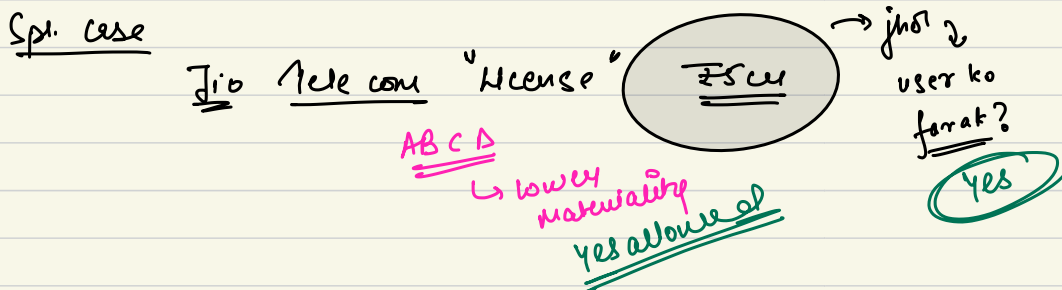 Spl. case
Jio Telecom "License" ₹5cr
→ jhol
user ko
farak?
Yes
ABCD
↳ lower
materiality
Yes allowed